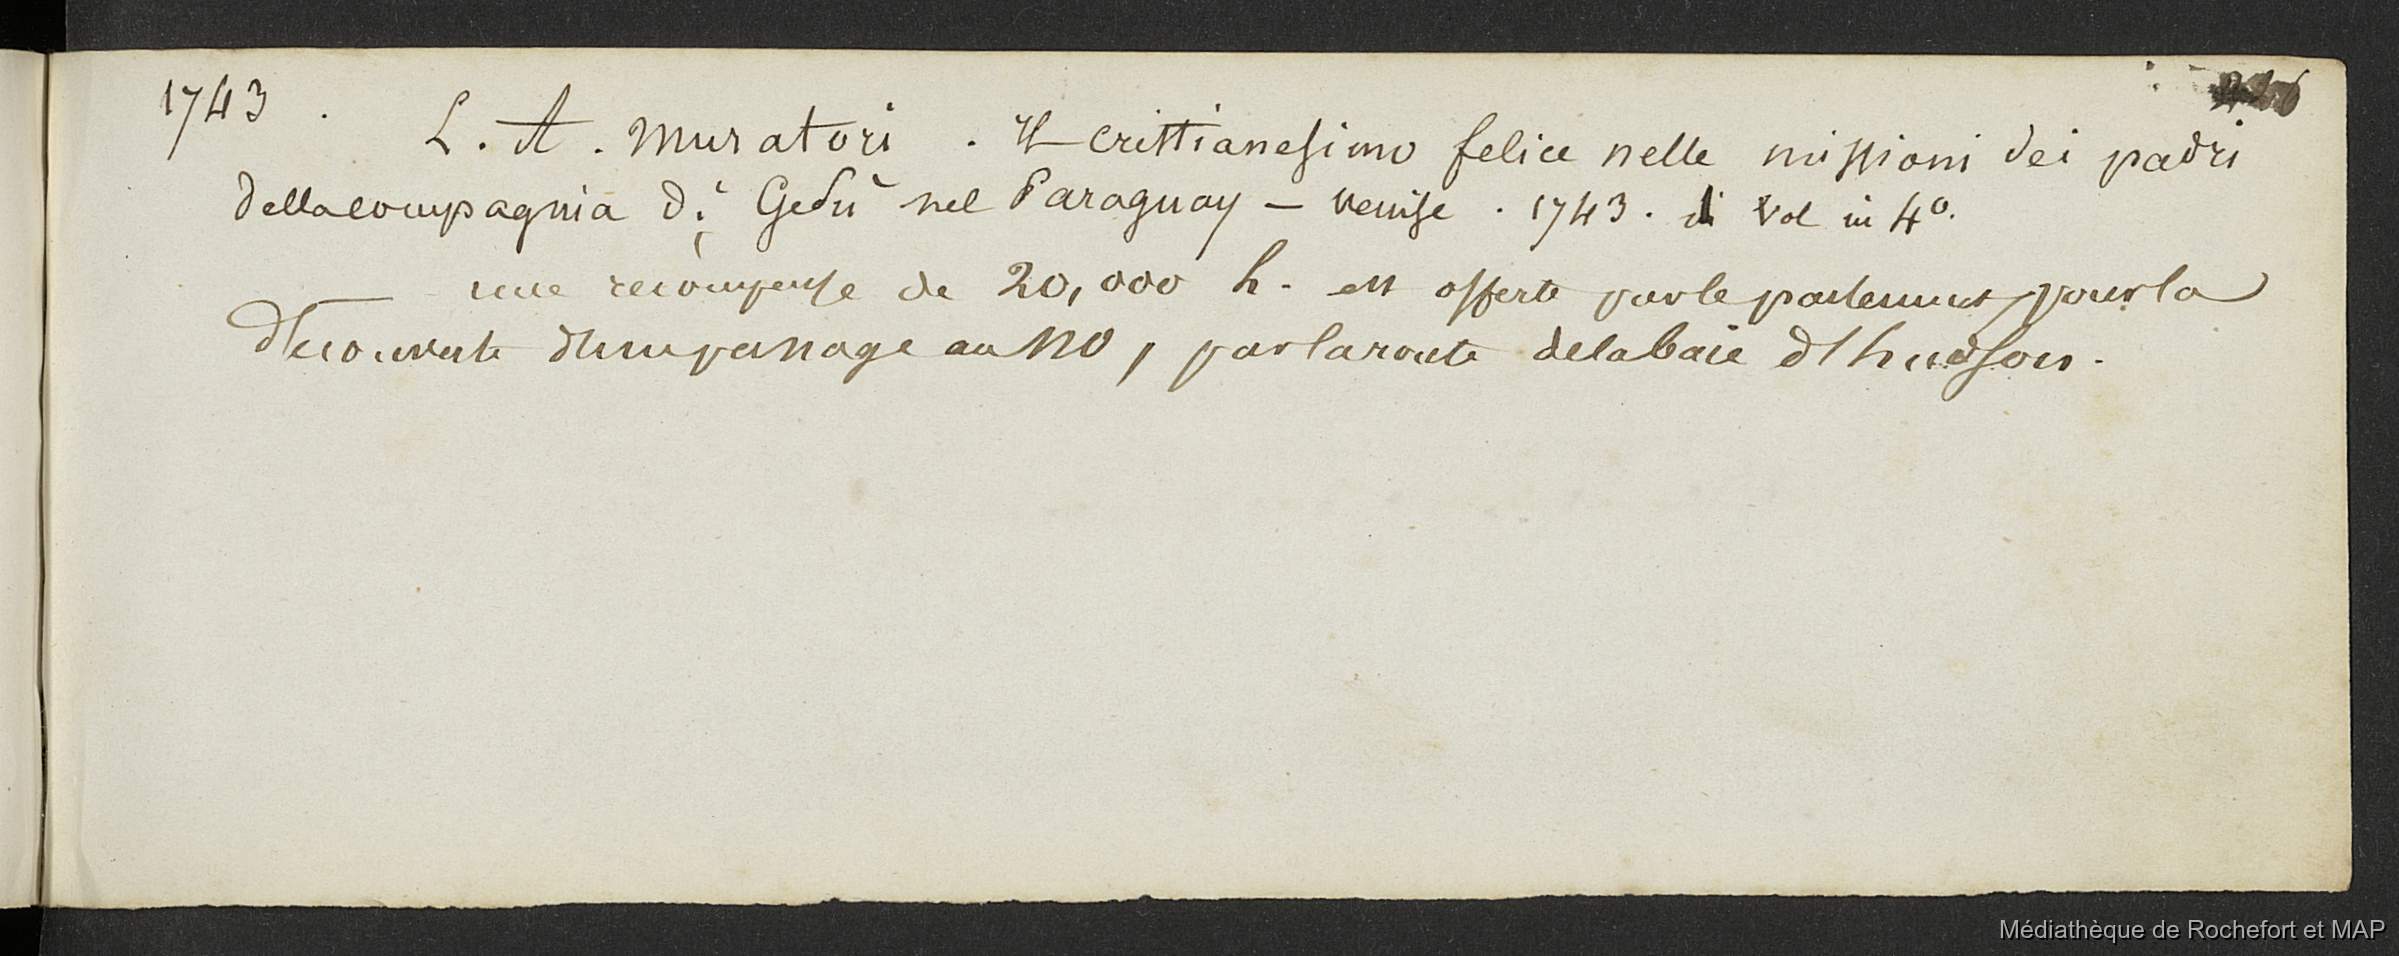 1743 .
L. A. Muratori . Il cristianesimo felice nelle missioni dei padri
della compagnia di Gesù nel Paraguay – venise . 1743. vol in 4º.
une recompense de 20,000 est offerte par le parlement pour la
decouverte d'un passage au NO, par la route de la baie d'hudson.
Médiathèque de Rochefort et MAP